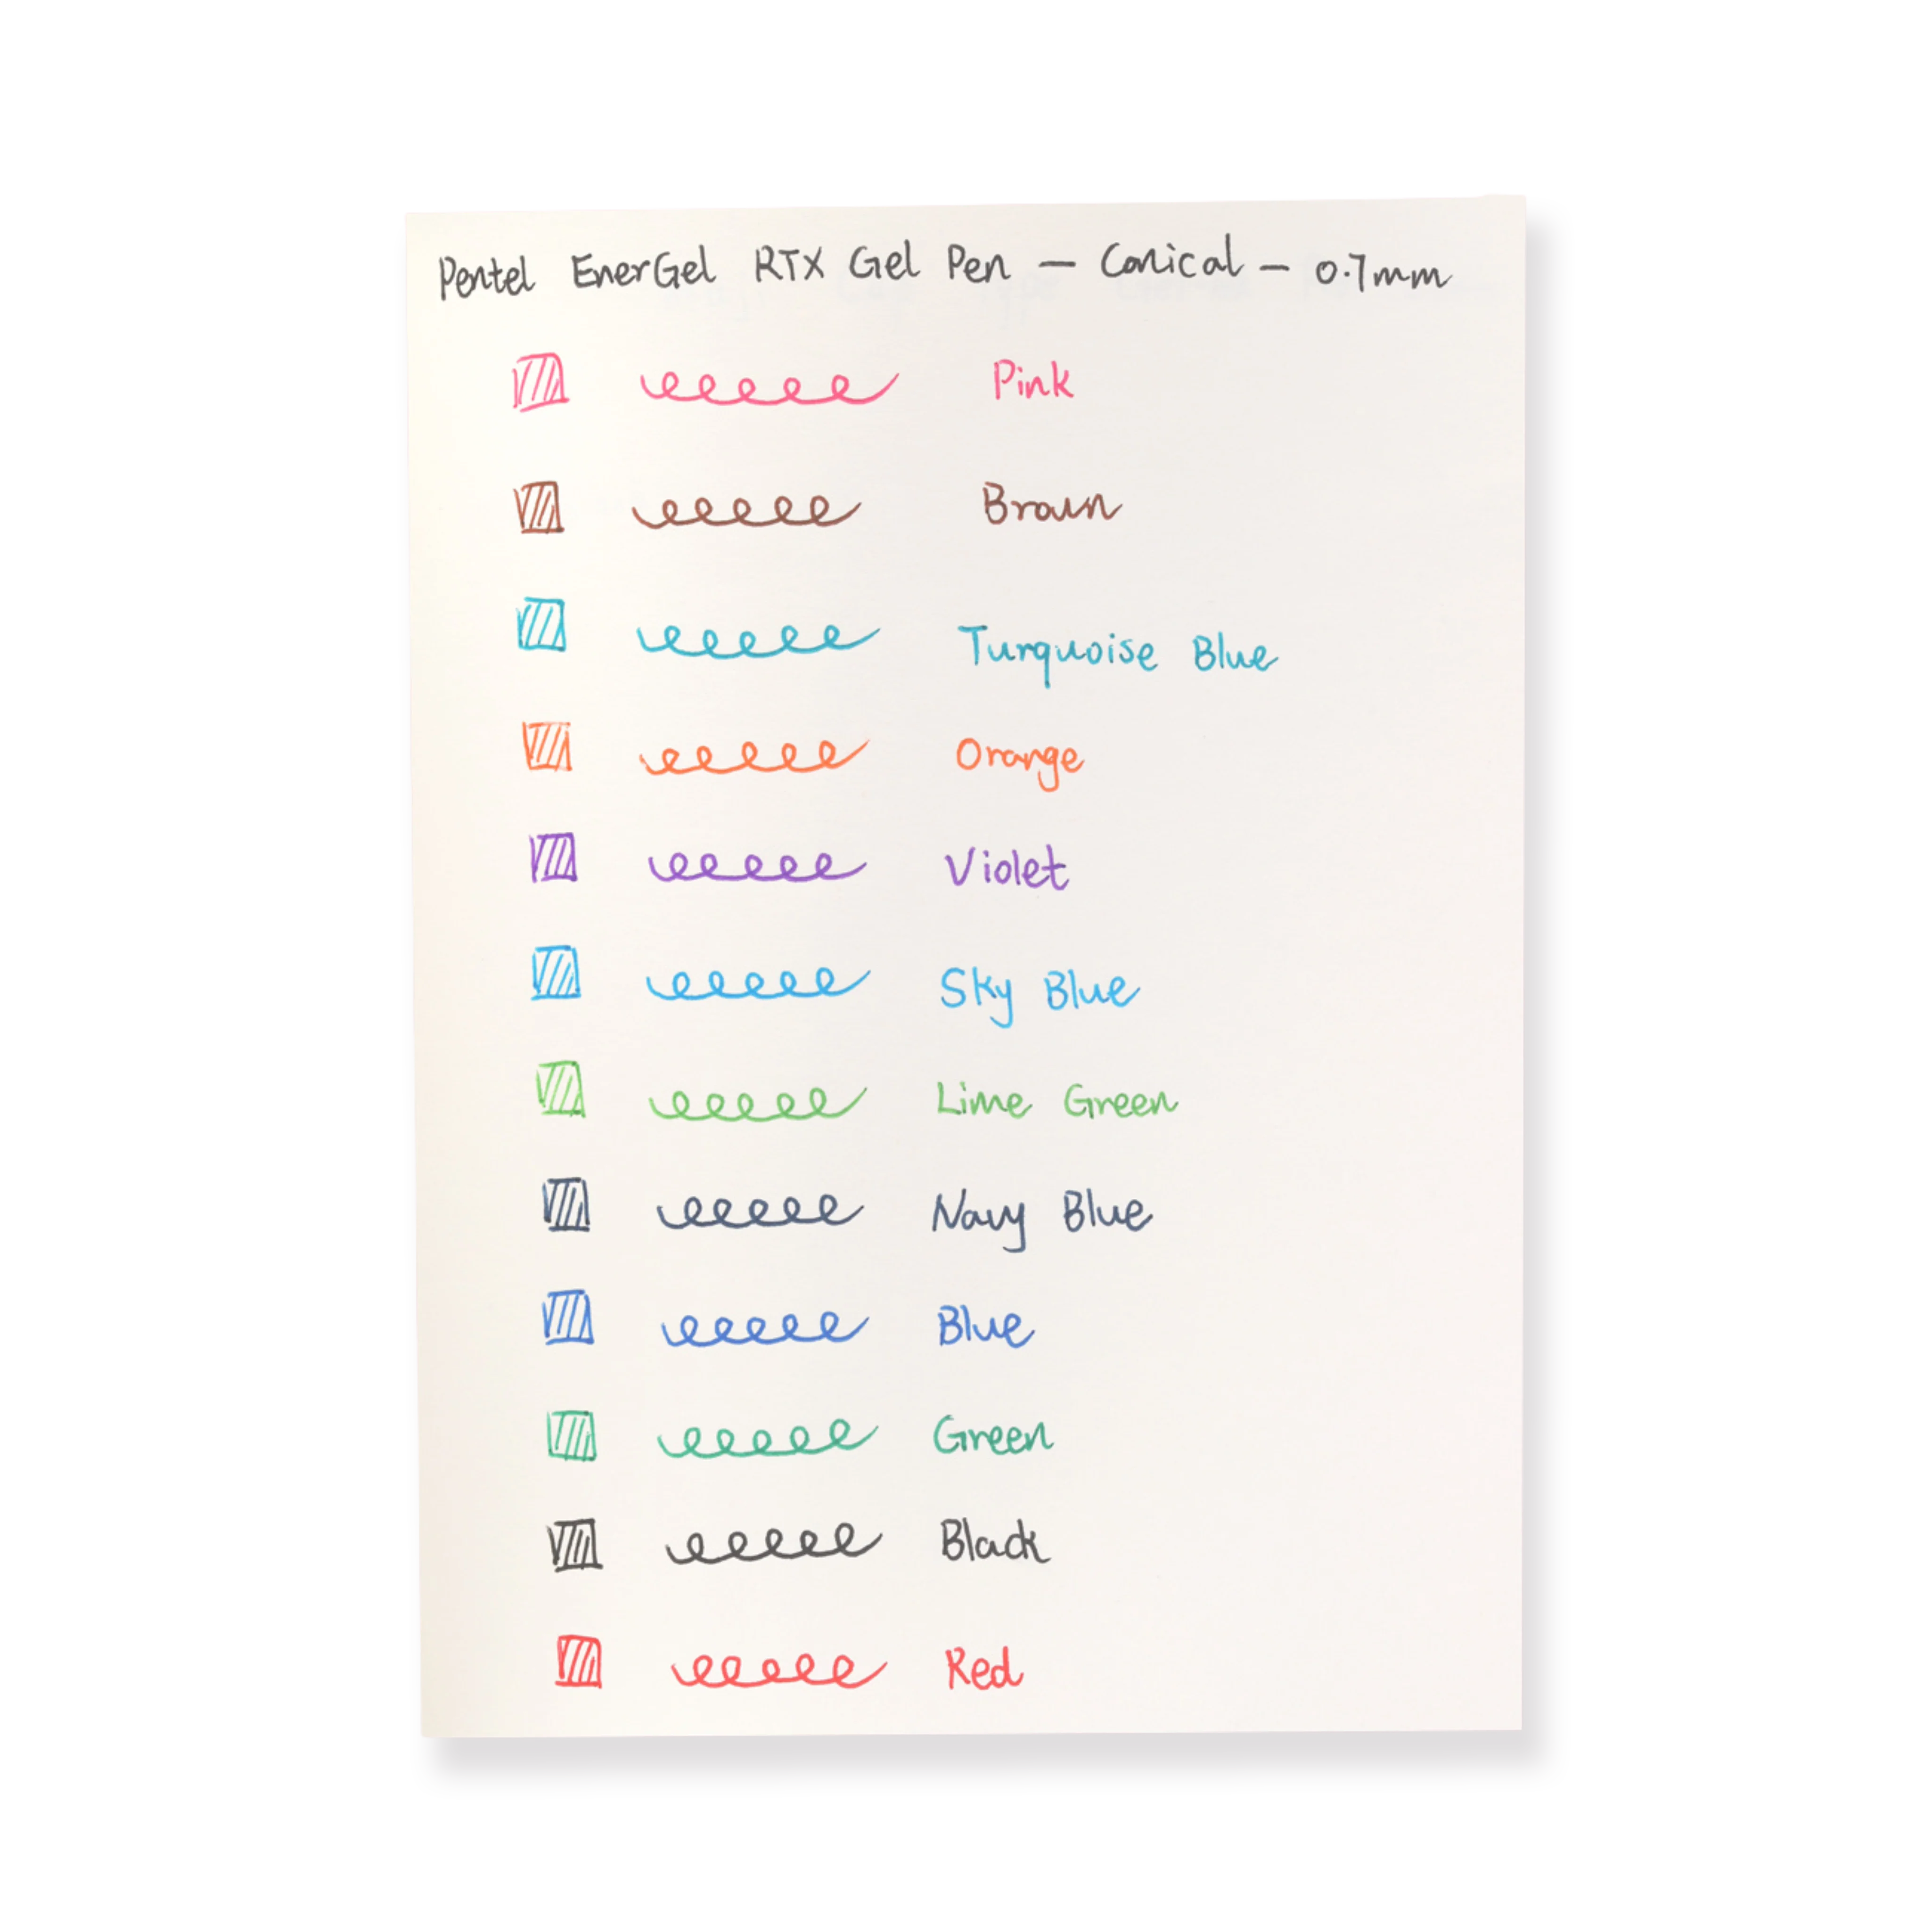 Pentel EnerGel RTX Gel Pen — Conical — 0.7mm
Pink
Brown
Turquoise Blue
Orange
Violet
Sky Blue
Lime Green
Navy Blue
Blue
Green
Black
Red